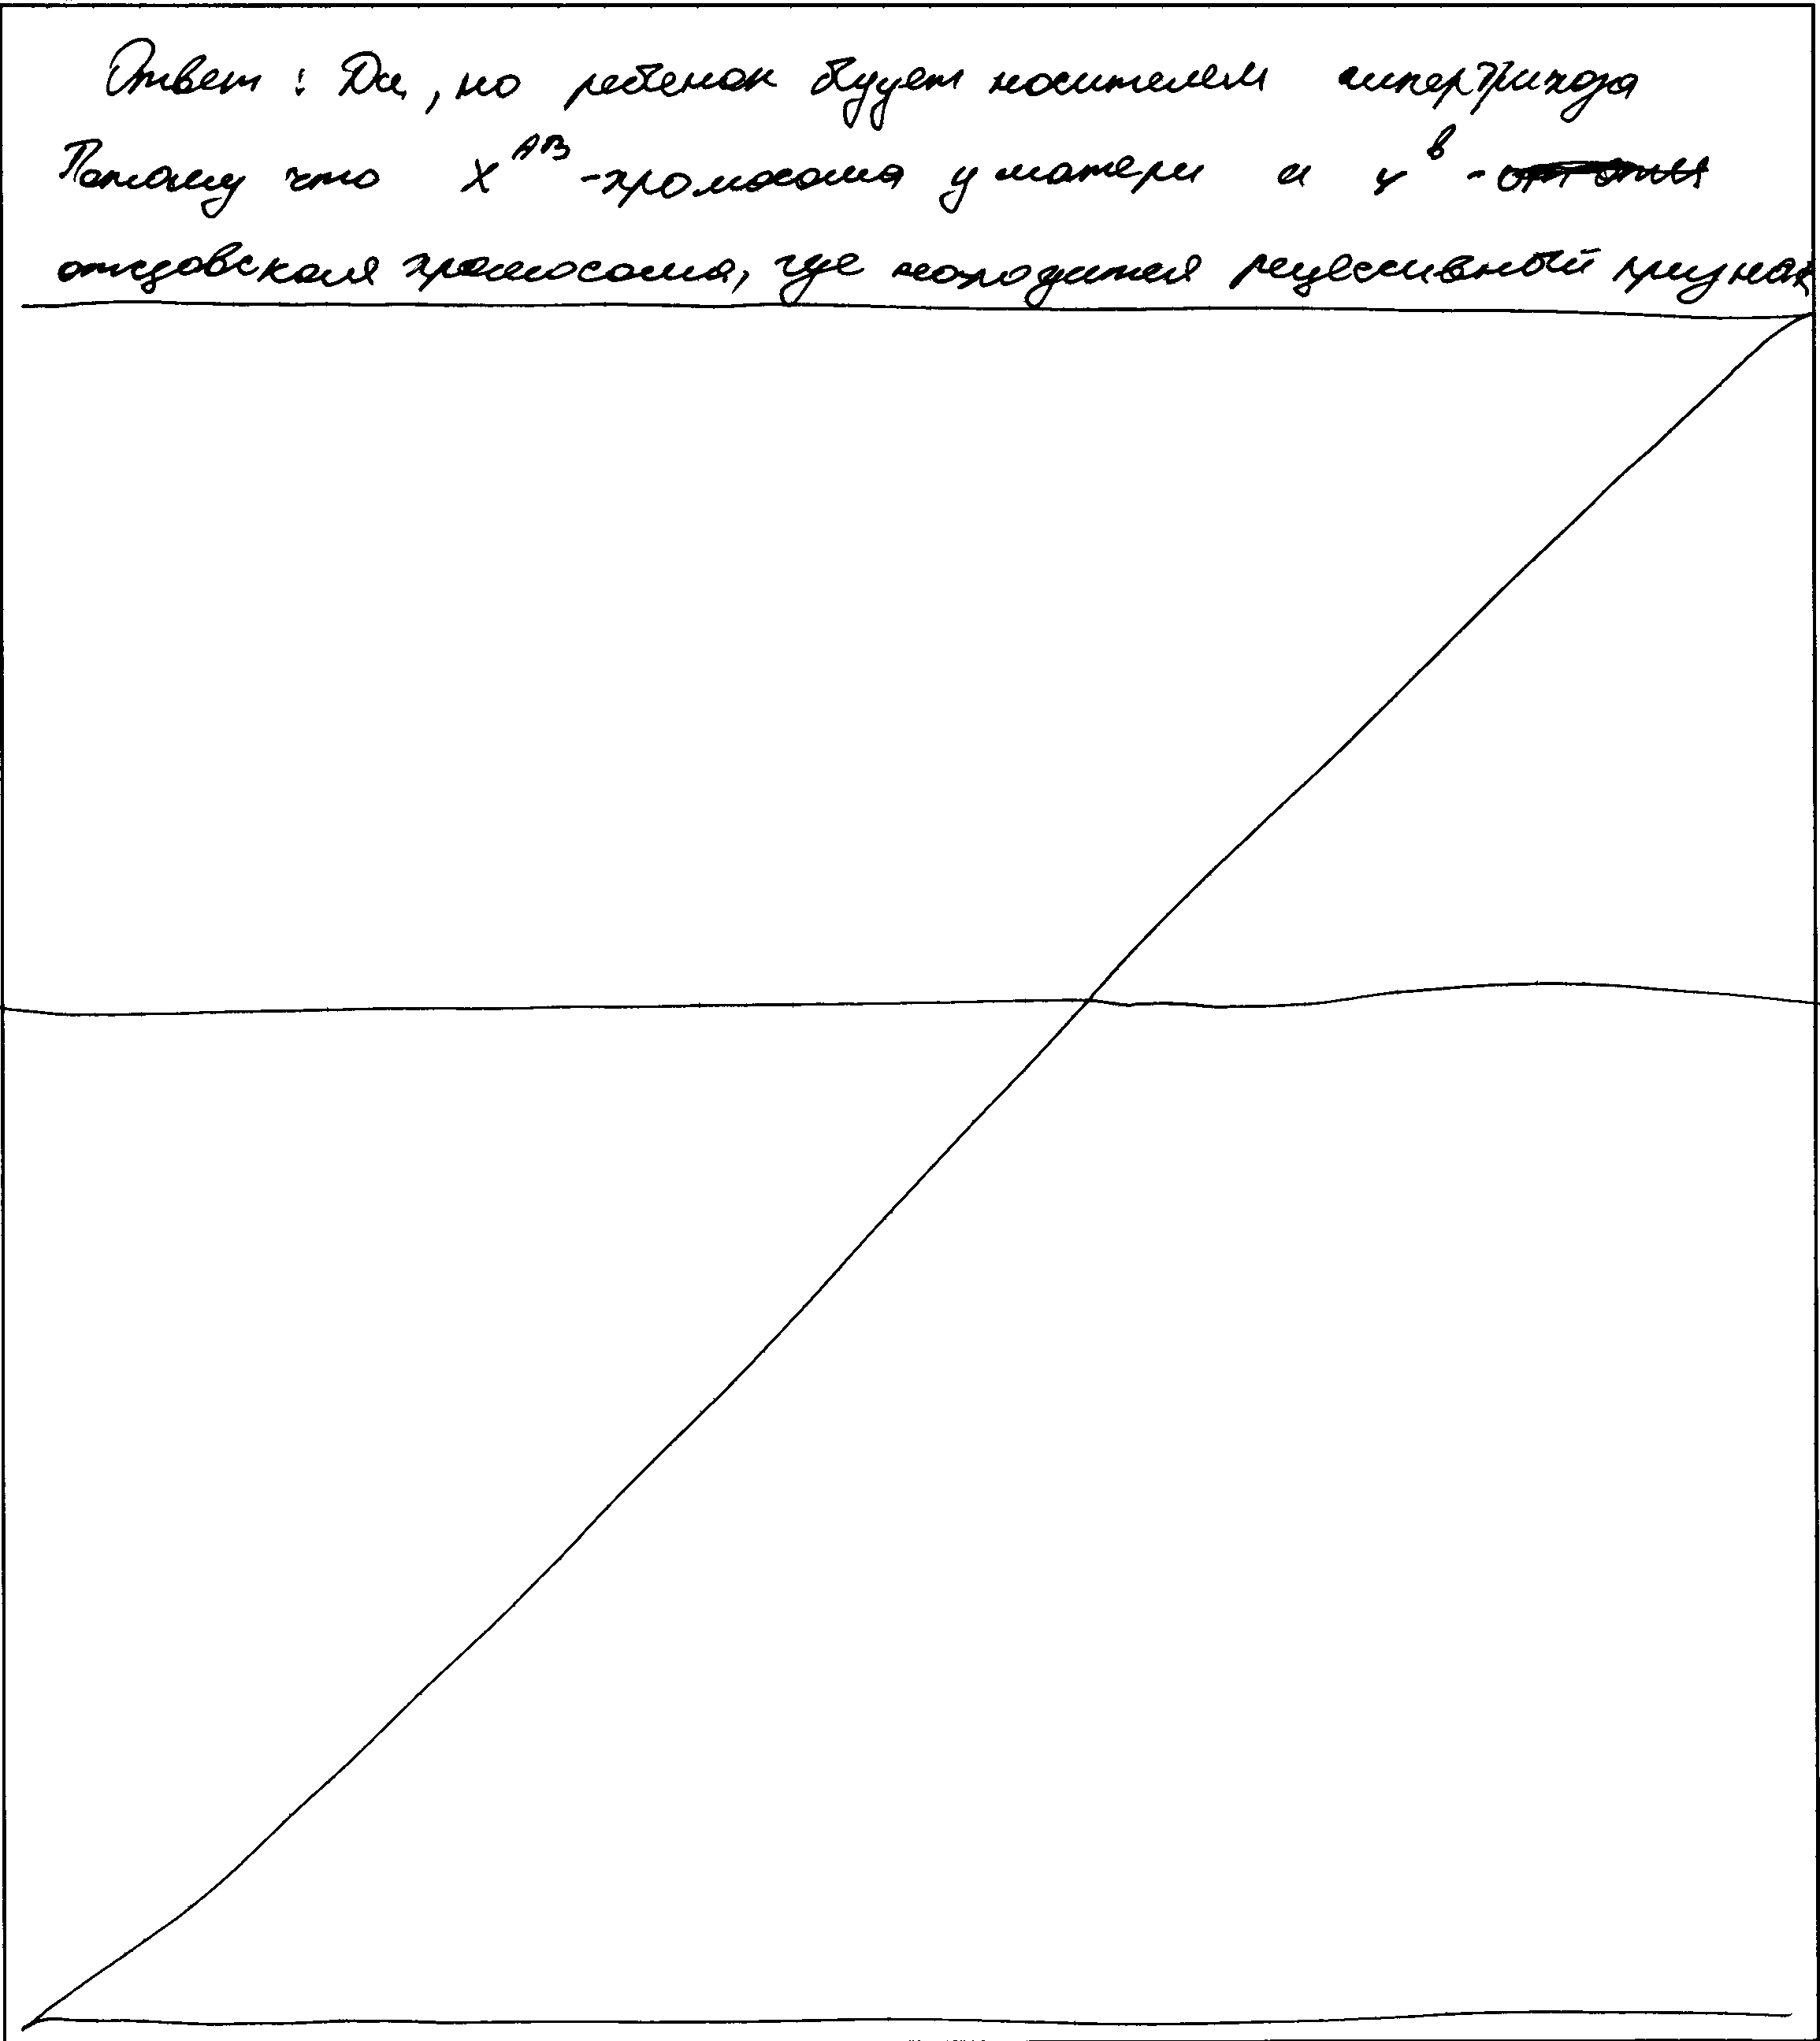 Ответ : Да, но ребенок будет носителем гипертрихоза
Потому что X^AB -хромосома у матери и y^b -
отцовская хромосома, где находится рецессивный признак